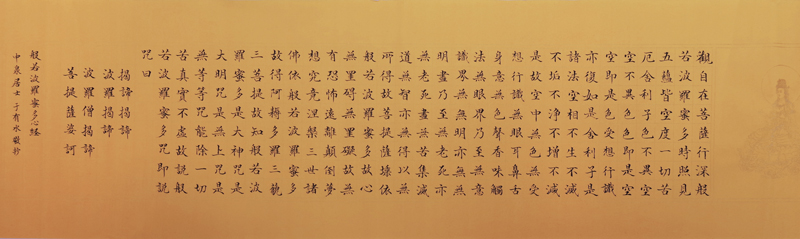 觀自在菩薩行深般
若波羅蜜多時照見
五蘊皆空度一切苦
厄舍利子色不異空
空不異色色即是空
空即是色受想行識
亦復如是舍利子是
諸法空相不生不滅
不垢不淨不增不減
是故空中無色無受
想行識無眼耳鼻舌
身意無色聲香味觸
法無眼界乃至無意
識界無無明亦無無
明盡乃至無老死亦
無老死盡無苦集滅
道無智亦無得以無
所得故菩提薩埵依
般若波羅蜜多故心
無罣礙無罣礙故無
有恐怖遠離顛倒夢
想究竟涅槃三世諸
佛依般若波羅蜜多
故得阿耨多羅三藐
三菩提故知般若波
羅蜜多是大神咒是
大明咒是無上咒是
無等等咒能除一切
苦真實不虛故說般
若波羅蜜多咒即說
咒曰
揭諦揭諦
波羅揭諦
波羅僧揭諦
菩提薩婆訶
般若波羅蜜多心經
居士子有水敬抄